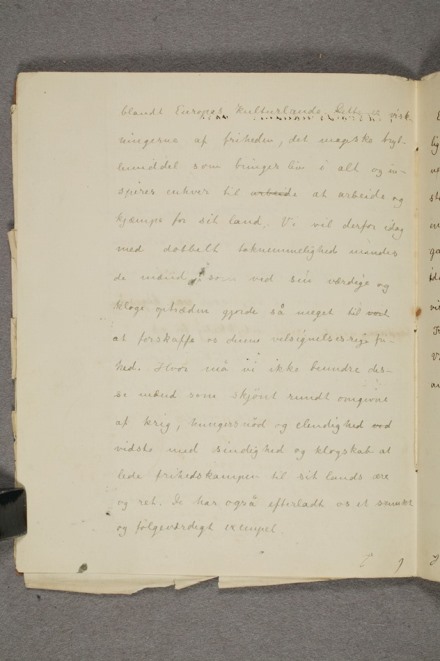 blandt Europas kulturlande. Dette er virk-
ningerne af friheden, det magiske tryl-
lemiddel som bringer liv i alt og in-
spirer enhver til arbeide at arbeide og
kjæmpe for sit land. Vi vil derfor idag
med dobbelt taknemmelighed mindes
de mænd, som ved sin værdige og
kloge optræden gjorde så meget til ved
at forskaffe os denne velsignelsesrige fri-
hed. Hvor må vi ikke beundre dis-
se mænd som skjønt rundt omgivne
af krig, hungersnød og elendighed
vidste med sindighed og klogskab at
lede frihedskampen til sit lands ære
og ret. De har også efterladt os et
og følgeværdigt exempel